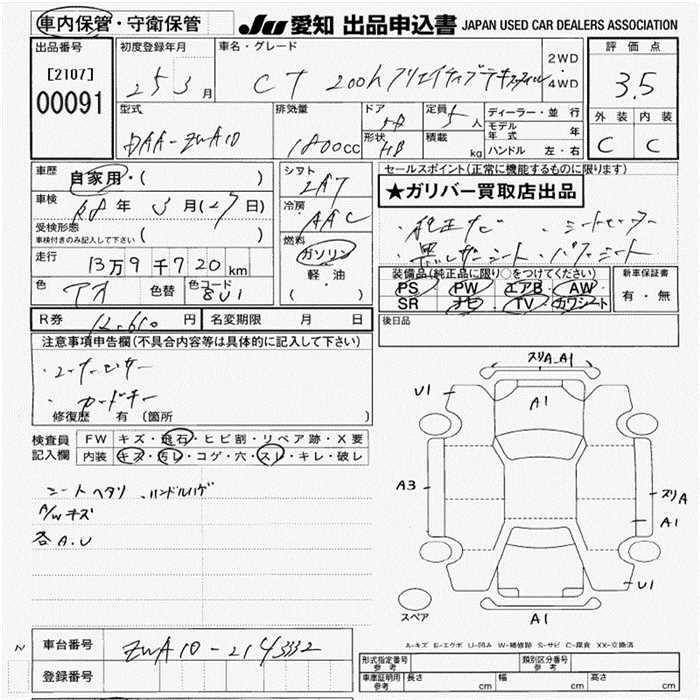 車内保管・守衛保管
JU 愛知 出品申込書 JAPAN USED CAR DEALERS ASSOCIATION
出品番号
[2107]
00091
初度登録年月
25 3 月
車名・グレード
CT 200h クリエイティブテキスタイル
2WD
・
4WD
評価点
3.5
外装 内装
C C
型式
DAA-ZWA10
排気量
1800cc
ドア
5D
形状
HB
定員
5 人
積載
kg
ディーラー・並行
モデル年式 年
ハンドル 左・右
車歴 自家用・( )
車検 R8 年 3 月(27日)
受検形態
車検付きのみ記入して下さい ( )
走行 13万9千720km
色 アオ 色替 色コード 8U1
シフト
LAT
冷房
AAC
燃料
ガソリン
軽・油
( )
セールスポイント(正常に機能するものに限ります)
★ガリバー買取店出品
・純正ナビ ・シートヒーター
・黒レザーシート ・パワーシート
装備品(純正品に限り○をつけてください)
PS PW エアB AW
SR ナビ TV カワシート
新車保証書
有・無
後日品
R券 12.610 円
名変期限 月 日
注意事項申告欄(不具合内容等は具体的に記入して下さい)
・コーナーセンサー
・カードキー
修復歴 有 (箇所
検査員
記入欄
FW キズ・飛石・ヒビ割・リペア跡・X要
内装 キズ・汚レ・コゲ・穴・スレ・キレ・破レ
シートヘタリ ハンドルハゲ
A/Wキズ
各A.U
スリA A1
U1
A1
A3
スリA
A1
U1
A1
スペア
A-キズ E-エクボ U-凹み W-補修跡 S-サビ C-腐食 XX-交換済
N
車台番号 ZWA10-2143332
登録番号
形式指定番号
参考
類別区分番号
参考
車庫証明用
参考
長さ cm 幅 cm 高さ cm